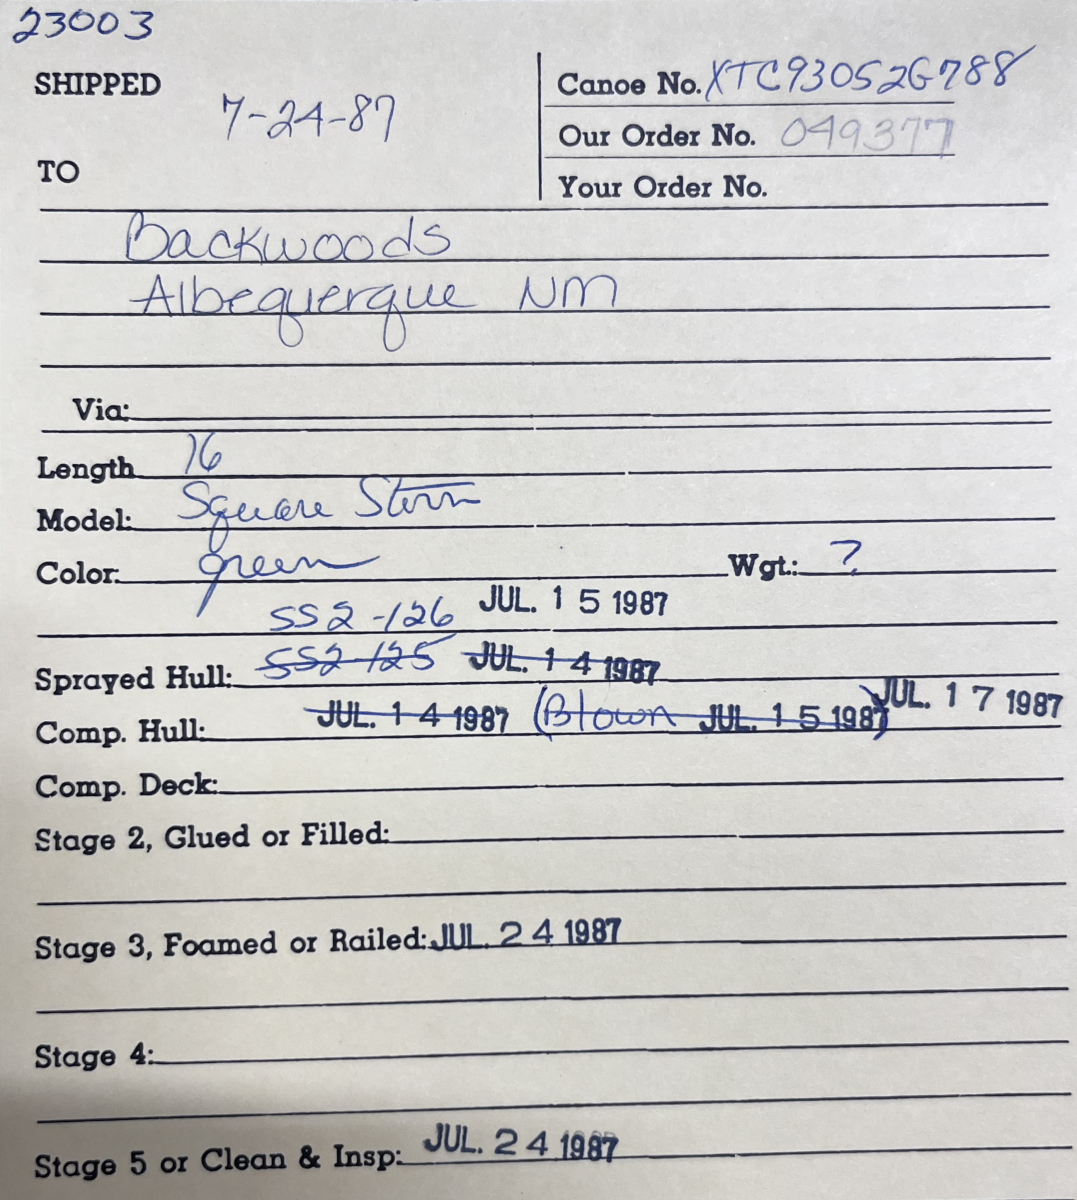 23003
SHIPPED 7-24-87
TO
Canoe No. XTC93052G788
Our Order No. 049377
Your Order No.
Backwoods
Albequerque NM
Via:
Length 16
Model: Square Stern
Color: green Wgt.: ?
SS2-126 JUL. 15 1987
Sprayed Hull: SS2-125 JUL. 14 1987
Comp. Hull: JUL. 14 1987 (Blown JUL. 15 1987) JUL. 17 1987
Comp. Deck:
Stage 2, Glued or Filled:
Stage 3, Foamed or Railed: JUL. 24 1987
Stage 4:
Stage 5 or Clean & Insp: JUL. 24 1987